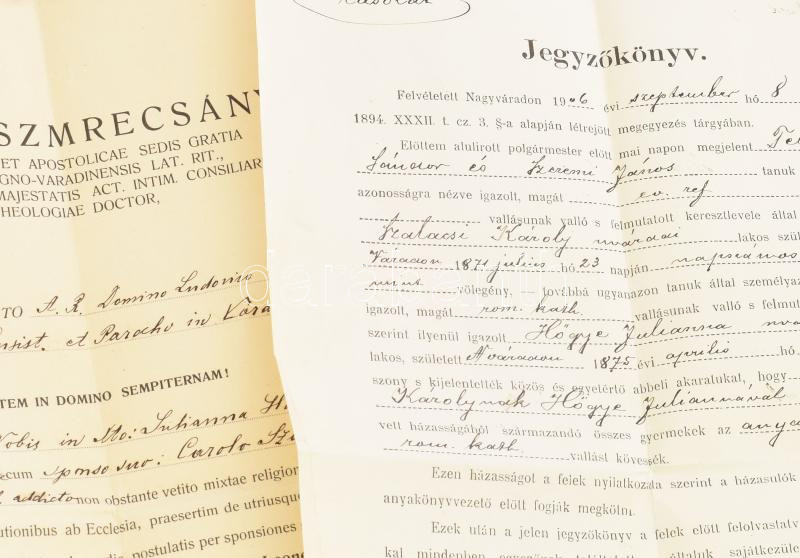 SZMRECSÁNY
ET APOSTOLICAE SEDIS GRATIA
GNO-VARADINENSIS LAT. RIT.,
MAJESTATIS ACT. INTIM. CONSILIAR
HEOLOGIAE DOCTOR,
TO A. R. Domino Ludovico
et Parocho in Vára
TEM IN DOMINO SEMPITERNAM!
Nobis in Mo: Julianna
cum sponso suo: Carolo
addicto non obstante vetito mixtae religion
utionibus ab Ecclesia, praesertim de utriusque
dis postulatis per sponsiones
Jegyzőkönyv.
Felvétetett Nagyváradon 1906 évi szeptember hó 8
1894. XXXII. t. cz. 3. §-a alapján létrejött megegyezés tárgyában.
Előttem alulirott polgármester előtt mai napon megjelent
Sándor és Szeremi János tanuk
azonosságra nézve igazolt, magát ev. ref
vallásunak valló s felmutatott keresztlevele által
Szalacsi Károly nváradi lakos szül
Váradon 1871 július hó 23 napján napszámos
mint vőlegény, továbbá ugyanazon tanuk által személyaz
igazolt, magát rom. kath vallásunak valló s felmut
szerint ilyenül igazolt Högye Julianna
lakos, született Nváradon 1875 évi április hó
szony s kijelentették közös és egyetértő abbeli akaratukat, hogy
Károlynak Högye Juliannával
vett házasságából származandó összes gyermekek az anya
rom. kath. vallást kövessék.
Ezen házasságot a felek nyilatkozata szerint a házasulók
anyakönyvezető előtt fogják megkötni.
Ezek után a jelen jegyzőkönyv a felek előtt felolvastatv
kal mindenben sajátkezüle